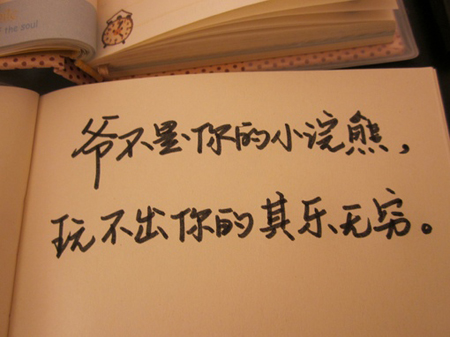 the soul
爷不是你的小浣熊，
玩不出你的其乐无穷。